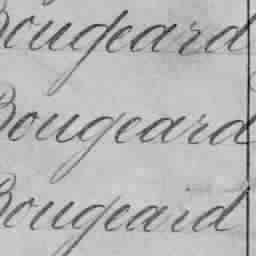 Bougeard
Bougeard
Bougeard